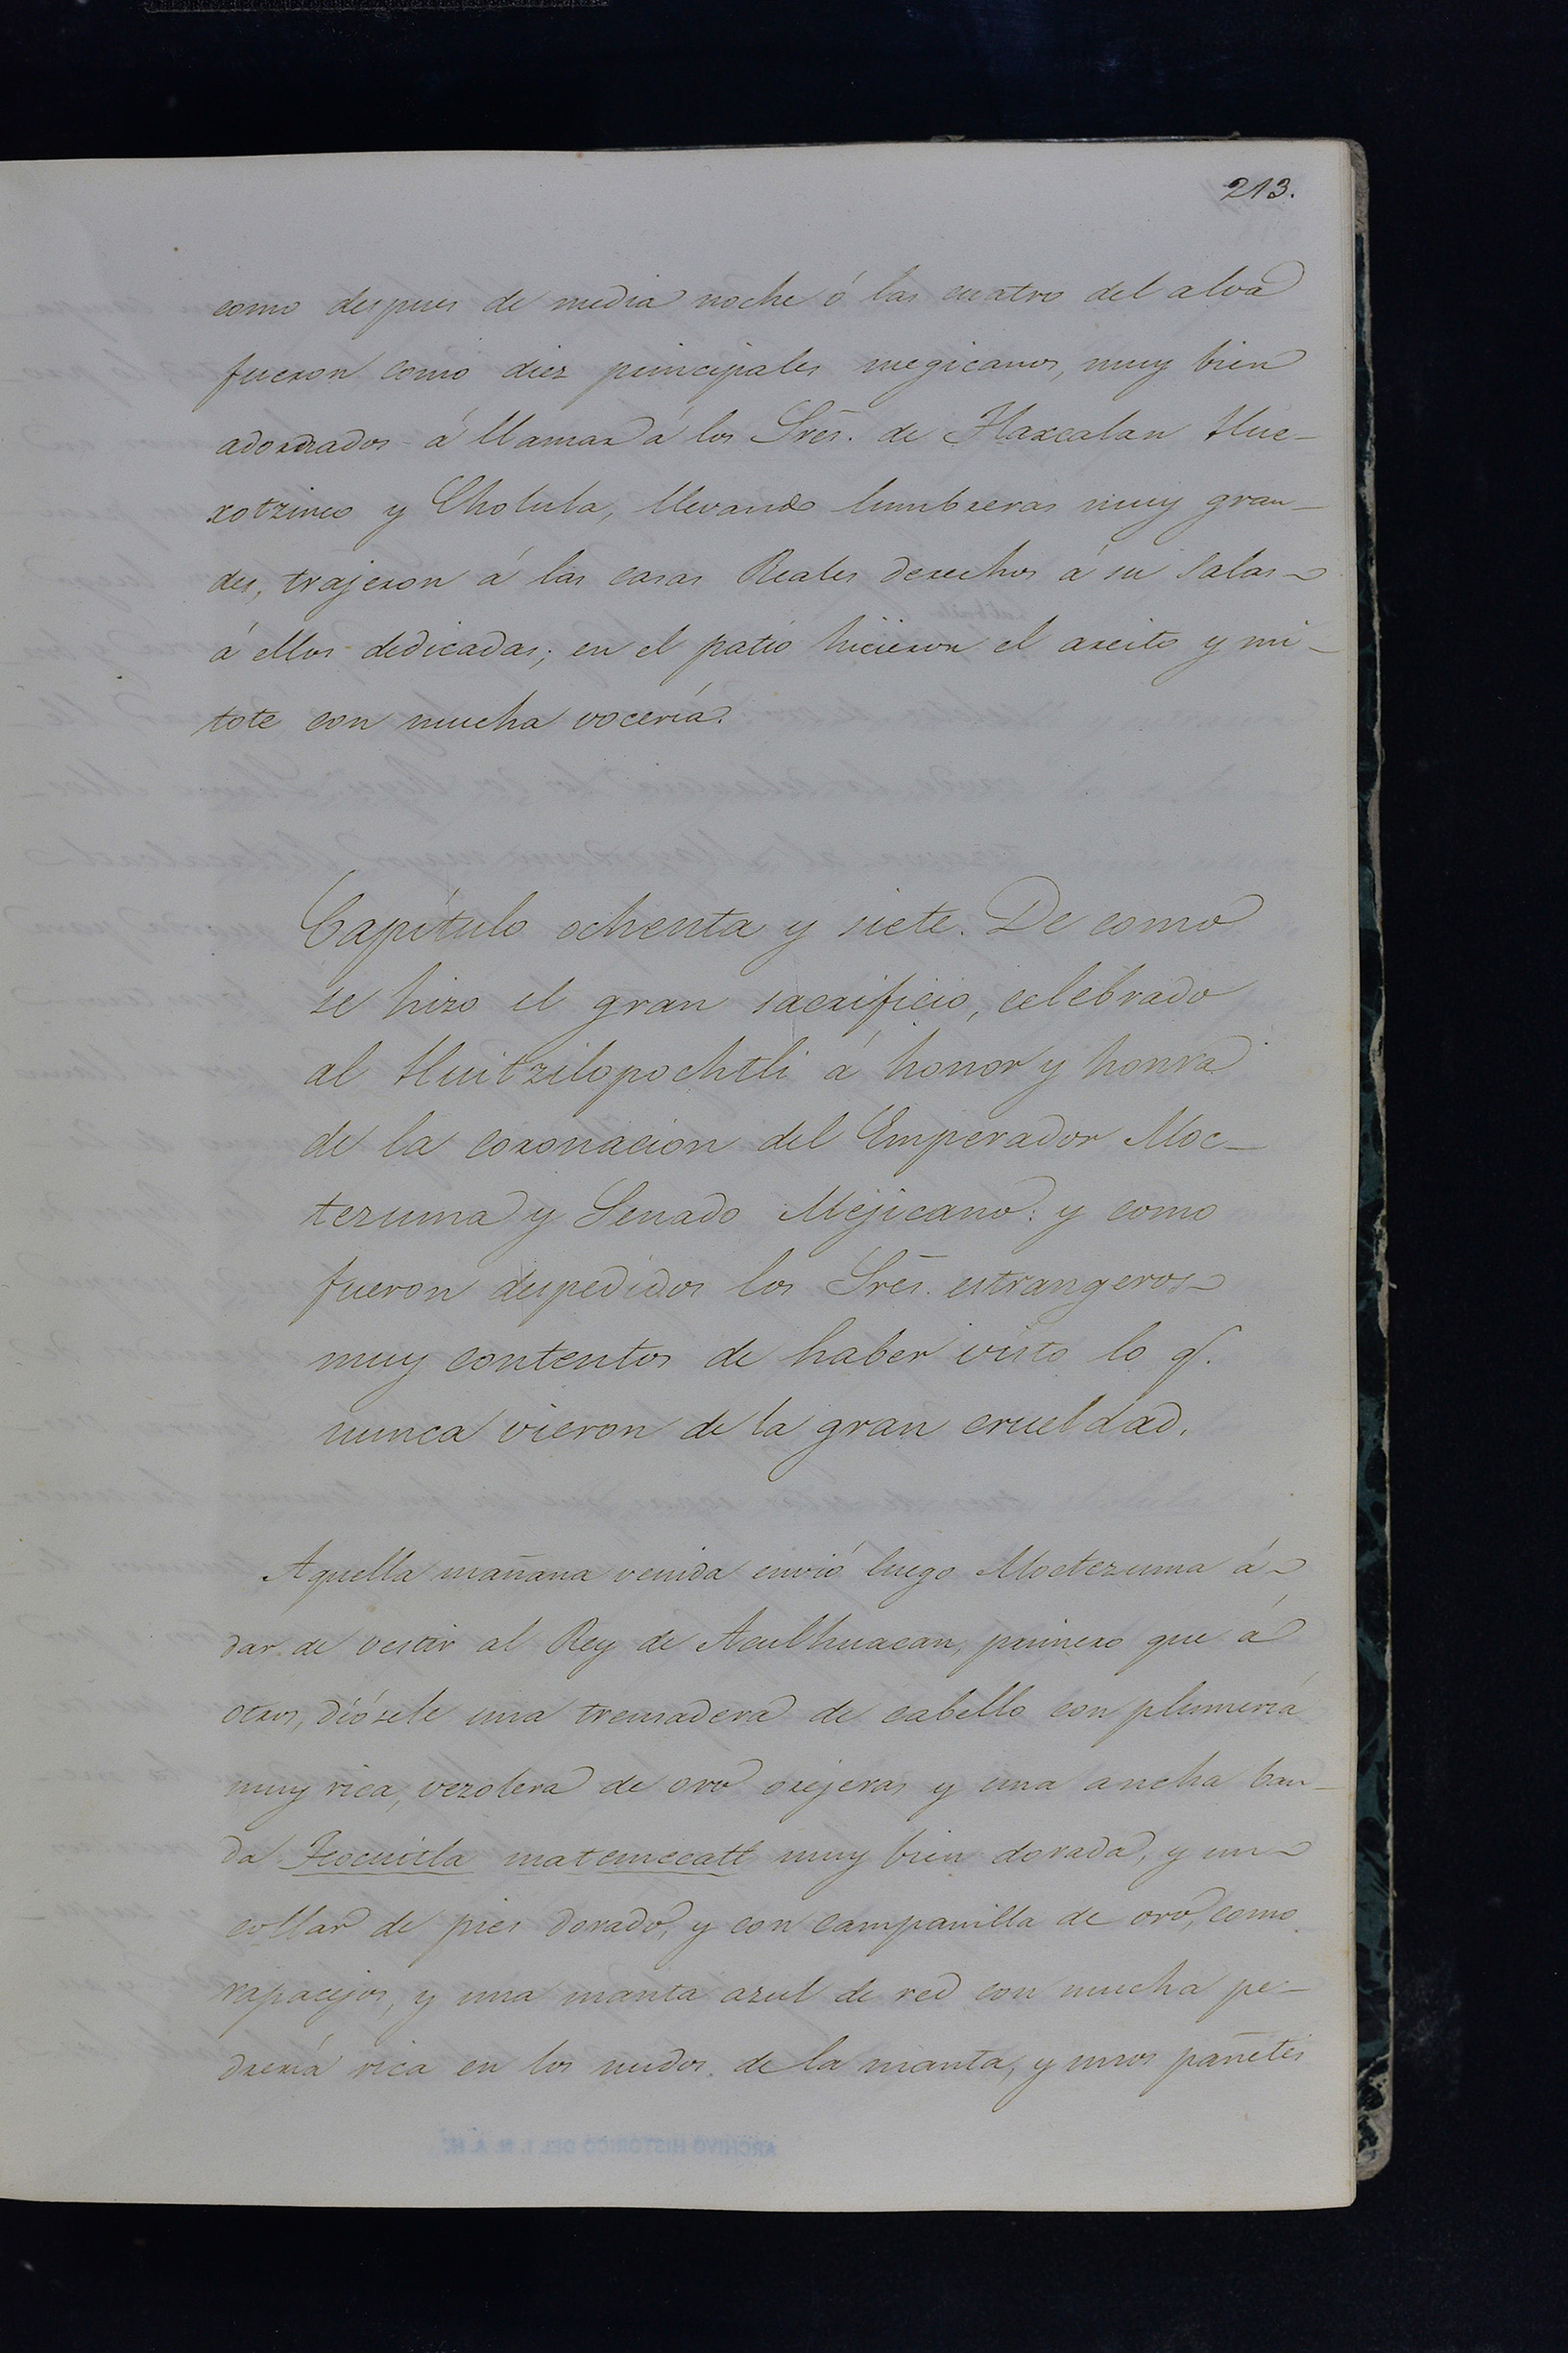 213.
como despues de media noche ó las cuatro del alva
fueron como diez principales megicanos, muy bien
adornados á llamar á los Sres. de Tlaxcalan Hue-
xotzinco y Cholula, llevando lumbreras muy gran-
des, trajeron á las casas Reales derechos á su salas
á ellos dedicadas; en el patio hicieron el areito y mi-
tote con mucha vocería.
Capítulo ochenta y siete. De como
se hizo el gran sacrificio, celebrado
al Huitzilopochtli á honor y honra
de la coronacion del Emperador Moc-
tezuma y Senado Mejicano: y como
fueron despedidos los Sres. estrangeros
muy contentos de haber visto lo q.
nunca vieron de la gran crueldad.
Aquella mañana venida envió luego Moctezuma á
dar de vestir al Rey de Aculhuacan, primero que á
otros, diósele una trensadera de cabello con plumería
muy rica, vezolera de oro orejeras y una ancha ban-
da Teocuitla matemecatl muy bien dorada, y un
collar de pies dorado, y con campanilla de oro, como
rapacejos, y una manta azul de red con mucha pe-
drería rica en los nudos de la manta, y unos pañetes
ARCHIVO HISTORICO DEL I. N. A. H.